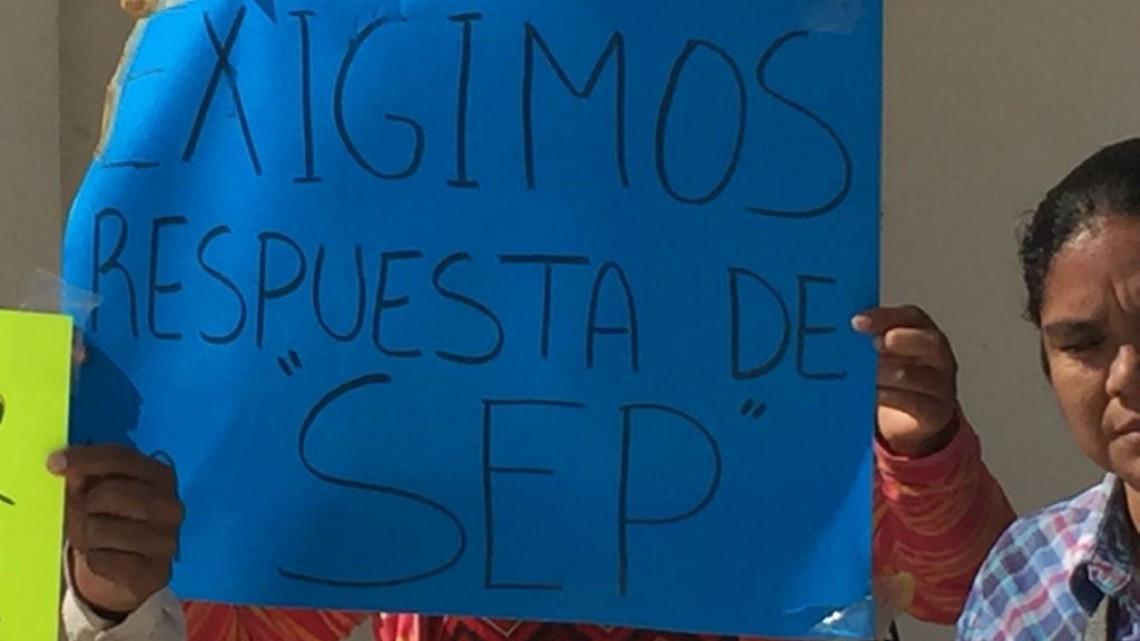 EXIGIMOS
RESPUESTA DE
"SEP"